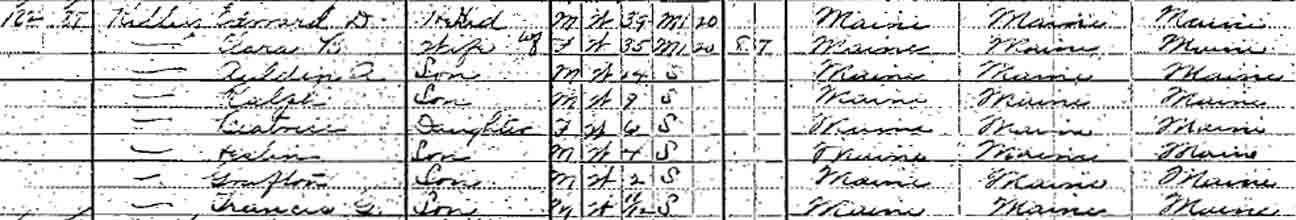 Edward D Head M W 39 M1 20 Maine Maine Maine
— Clara B Wife F W 35 M1 20 8 7 Maine Maine Maine
— A Son M W 14 S Maine Maine Maine
— Ralph Son M W 9 S Maine Maine Maine
— Beatrice Daughter F W 6 S Maine Maine Maine
— Son M W 4 S Maine Maine Maine
— Grafton Son M W 2 S Maine Maine Maine
— Francis G. Son M W S Maine Maine Maine